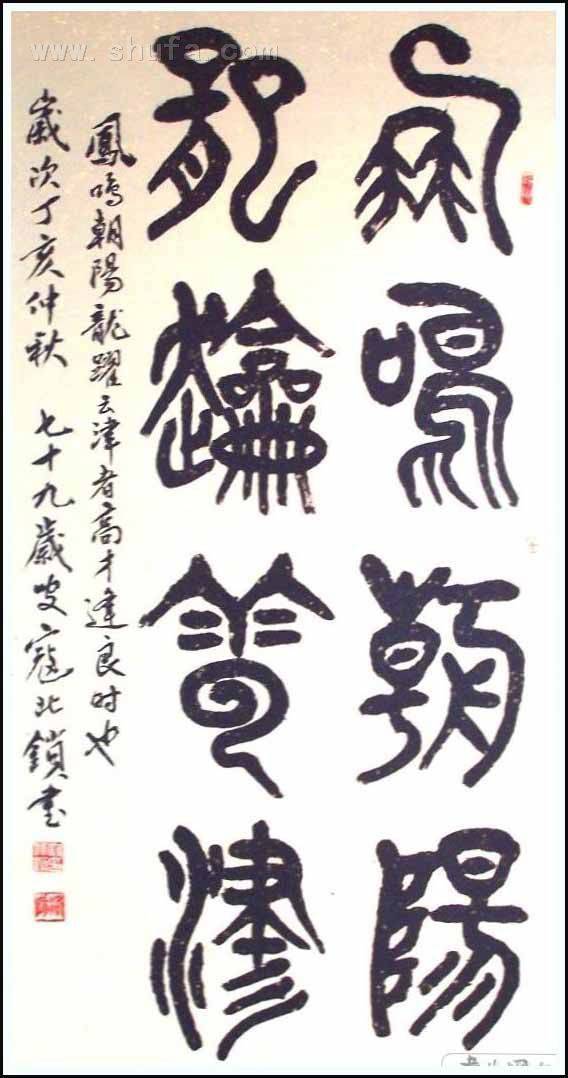 鳳鳴朝陽
龍躍雲津
鳳鳴朝陽龍躍云津者高才逢良时也
歲次丁亥仲秋 七十九歲叟寇北鎖書
www.shufa.com